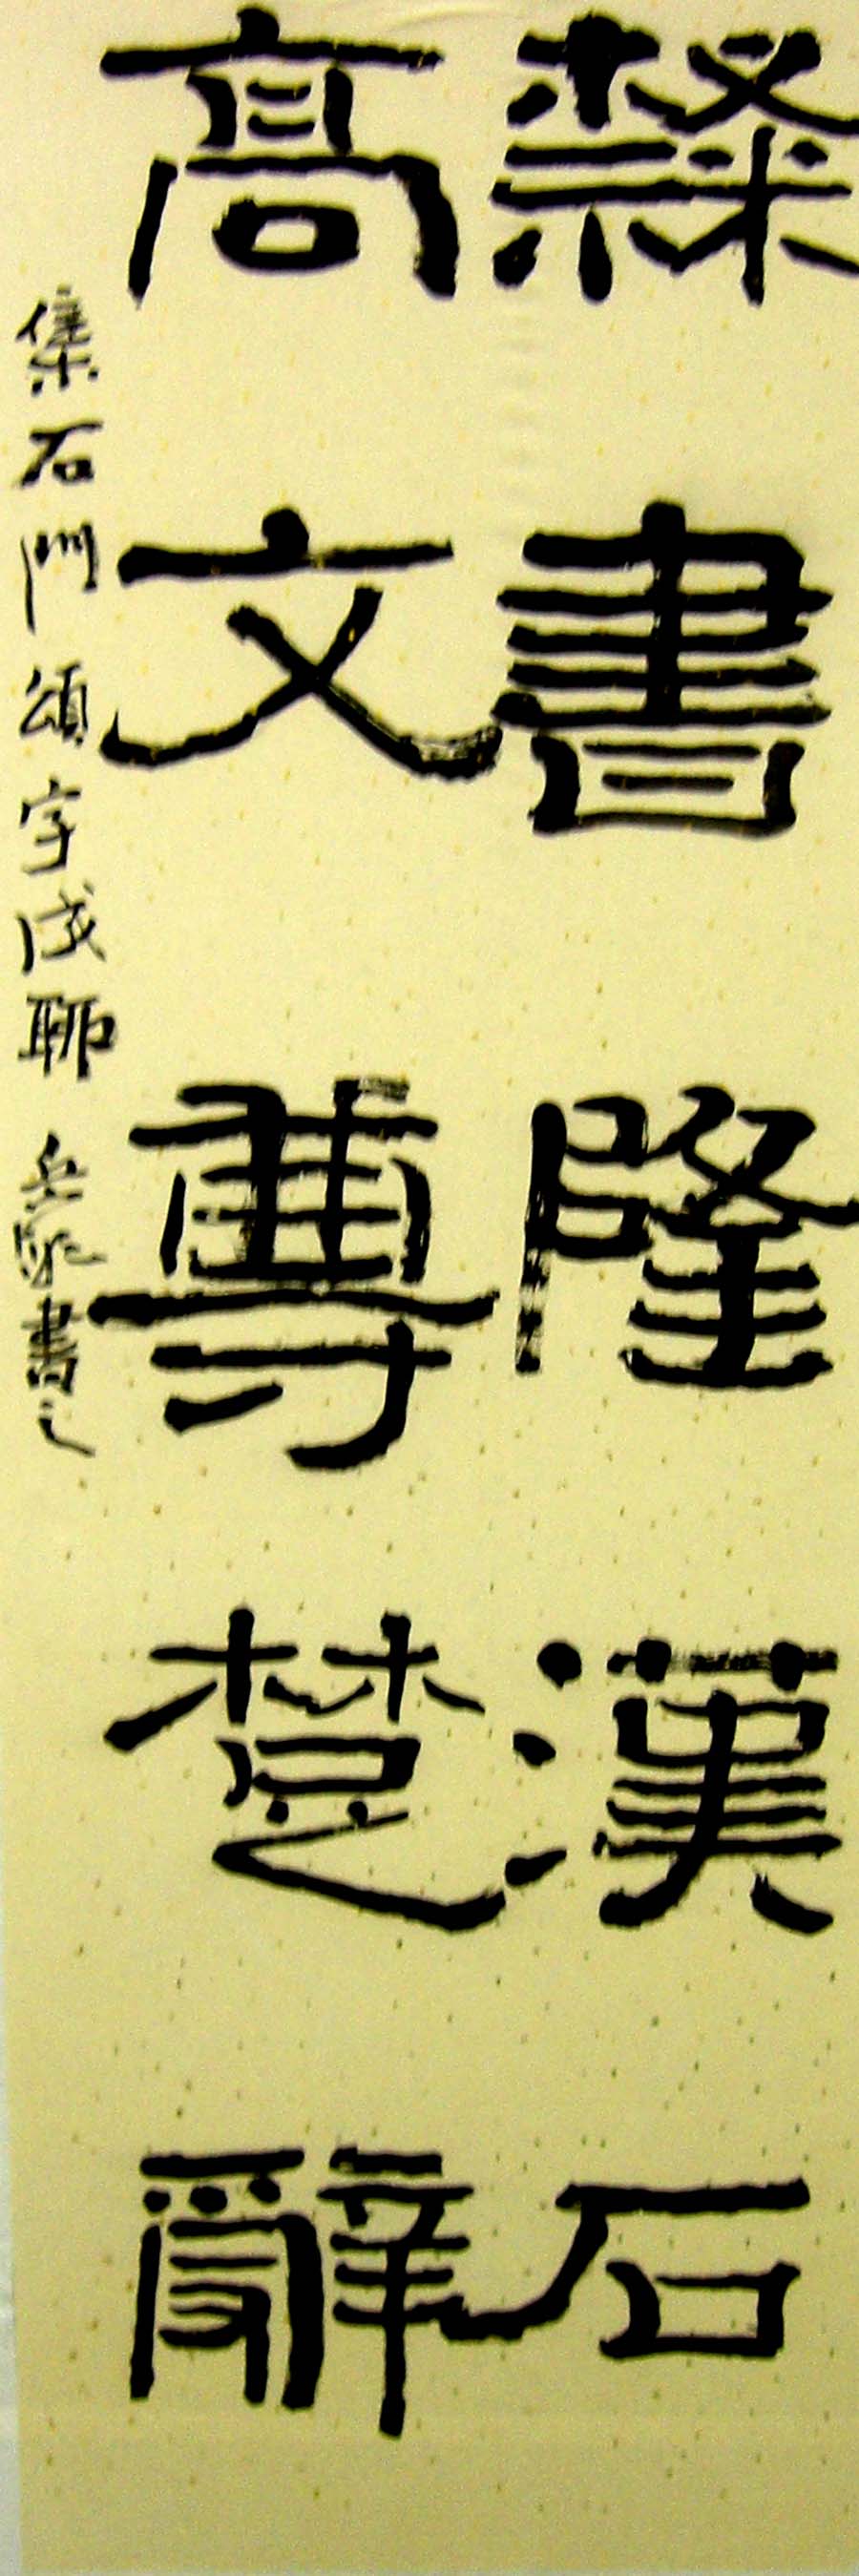 隸書隆漢石
高文尊楚辭
集石門頌字成聯 書之